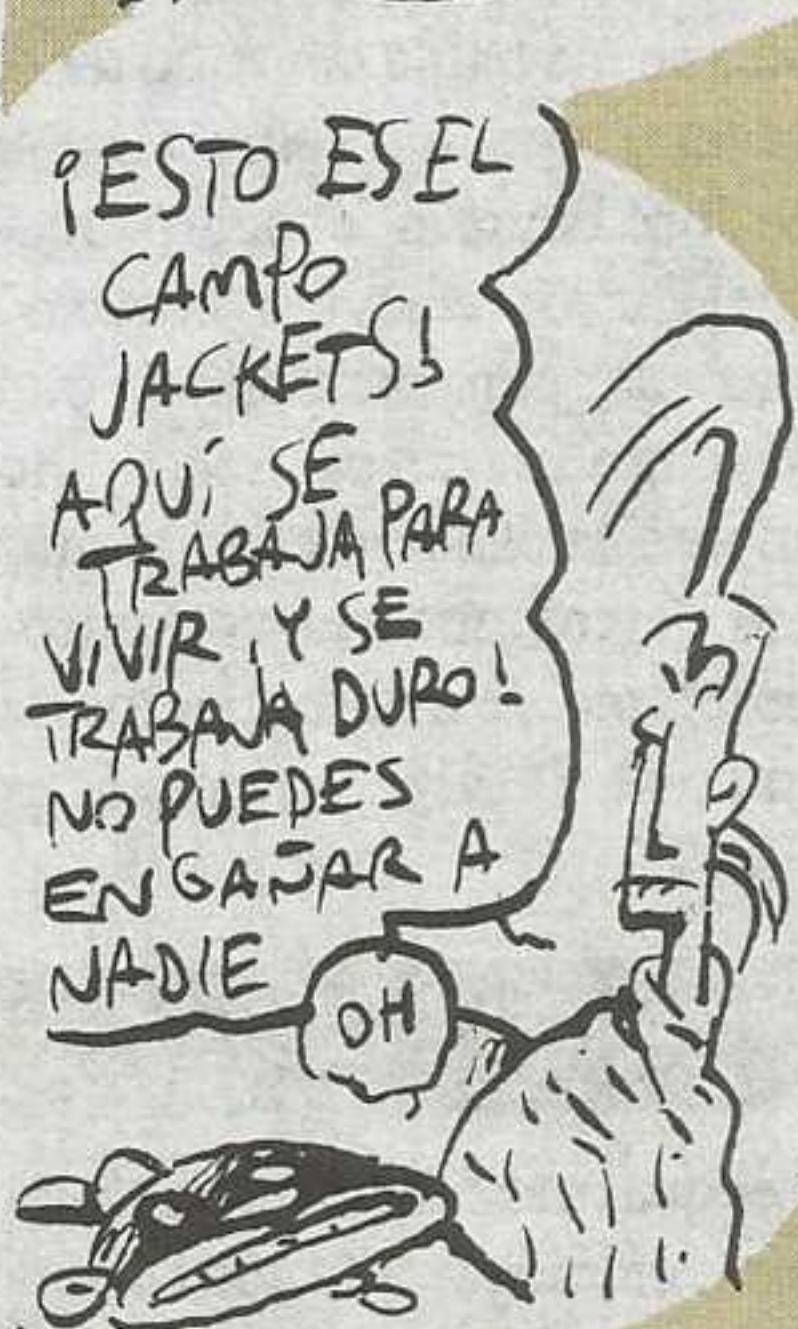 ¡ESTO ES EL
CAMPO
JACKETS!
AQUÍ SE
TRABAJA PARA
VIVIR, Y SE
TRABAJA DURO!
NO PUEDES
ENGAÑAR A
NADIE
OH